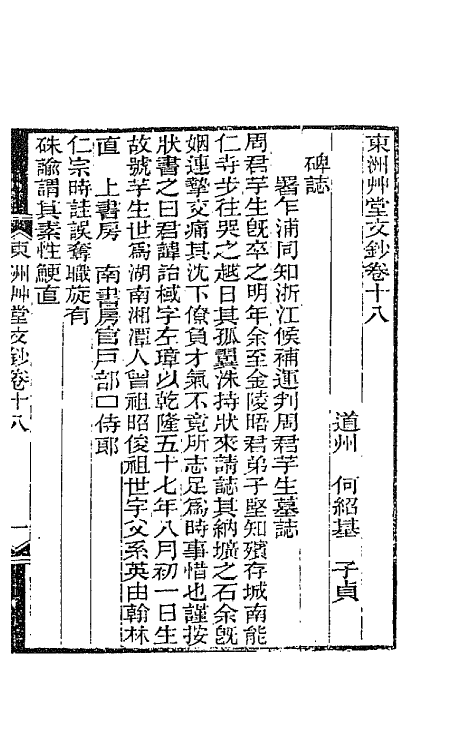 東洲艸堂文鈔卷十八
道州　何紹基　子貞
碑誌
署乍浦同知浙江候補運判周君芋生墓誌
周君芋生旣卒之明年余至金陵晤君弟子堅知殯存城南能
仁寺步往哭之越日其孤翼洙持狀來請誌其納壙之石余旣
姻連摯交痛其沈下僚負才氣不竟所志足爲時事惜也謹按
狀書之曰君諱詒棫字左璋以乾隆五十七年八月初一日生
故號芋生世爲湖南湘潭人曾祖昭俊祖世宇父系英由翰林
直　上書房　南書房官戸部口侍郎
仁宗時詿誤奪職旋有
硃諭謂其素性鯁直
東洲艸堂文鈔卷十八
一